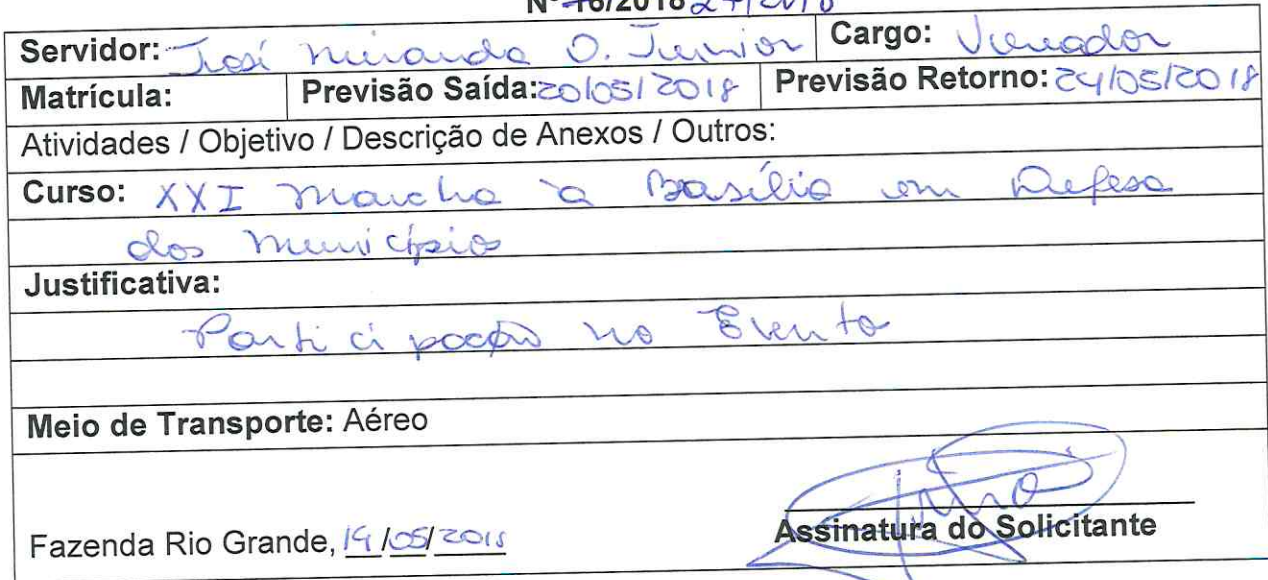 Nº 16/2018 27/2018
Servidor: José Miranda O. Junior Cargo: Vereador
Matrícula: Previsão Saída: 20/05/2018 Previsão Retorno: 24/05/2018
Atividades / Objetivo / Descrição de Anexos / Outros:
Curso: XXI Marcha à Brasília em Defesa
dos Municípios
Justificativa:
Participação no Evento
Meio de Transporte: Aéreo
Assinatura do Solicitante
Fazenda Rio Grande, /05/2018